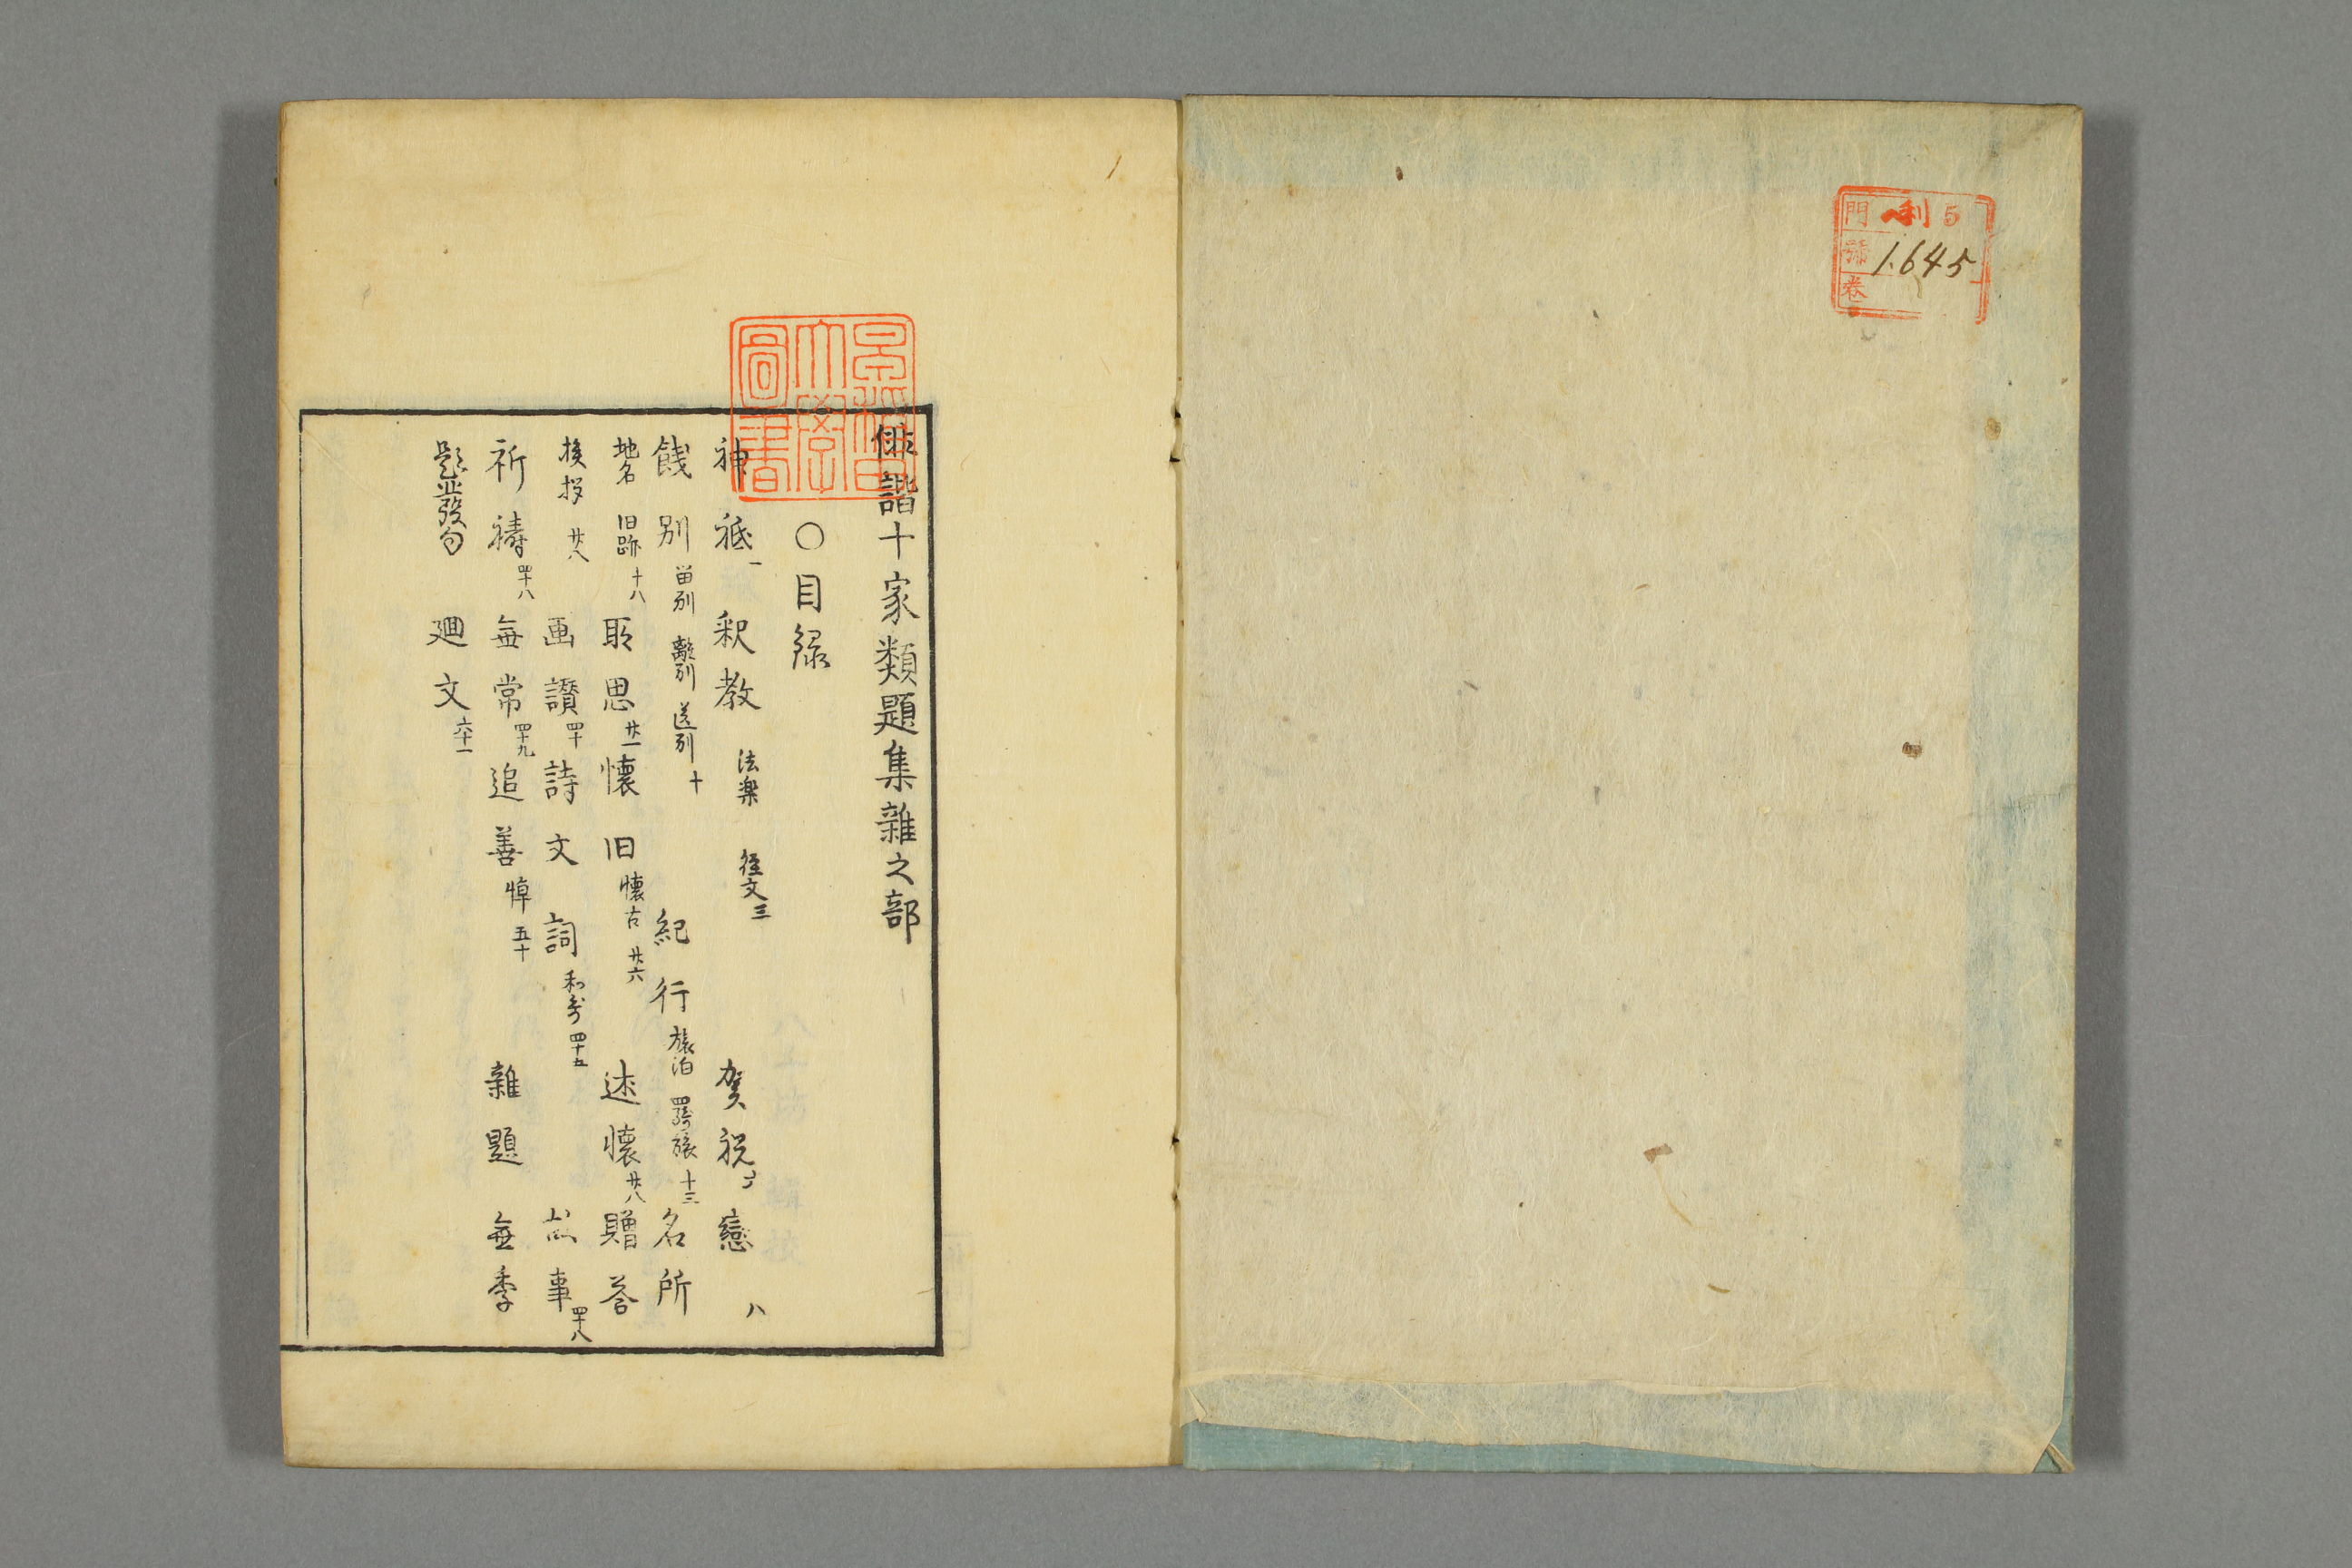 門 利 5
號 1.645
卷
早稲田大學圖書
俳諧十家類題集雜之部
○目録
神祇一 釈教 法楽 経文三 賀祝 戀 八
餞別 畄別 離別 送別 十 紀行 旅泊 羇旅 十三 名所
地名 旧跡 十八 耴思 廿一 懐旧 懐古 廿六 述懐 廿八 贈答
挨拶 廿八 画讃 四十 詩文 詞 和哥 四十五 故事 四十八
祈祷 四十八 無常 四十九 追善 悼 五十 雜題 無季
題並發句 廻文 六十一